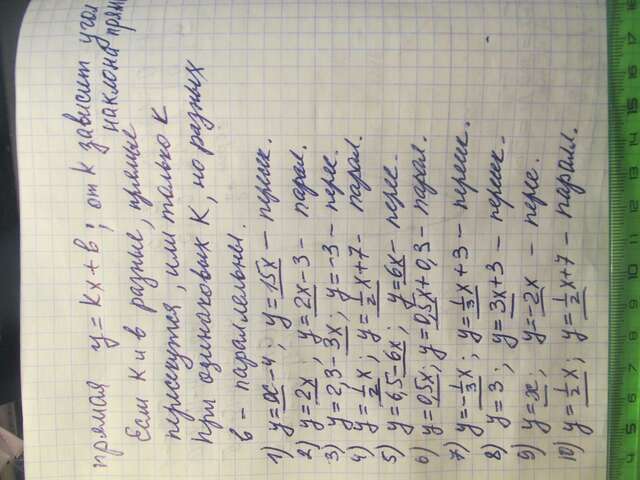 прямая y = kx + в ; от к зависит угол
наклона прям
Если к и в разные, прямые
пересекутся, или только к
При одинаковых к, но разных
в - параллельны.
1) y = x - 4 ; y = 15x - перес.
2) y = 2x ; y = 2x - 3 - парал.
3) y = 2,3 - 3x ; y = -3 - перес.
4) y = 1/2 x ; y = 1/2 x + 7 - парал.
5) y = 6,5 - 6x ; y = 6x - перес.
6) y = 0,5x ; y = 0,5x + 0,3 - парал.
7) y = -1/3 x ; y = 1/3 x + 3 - перес.
8) y = 3 ; y = 3x + 3 - перес.
9) y = x ; y = -2x - перес.
10) y = 1/2 x ; y = 1/2 x + 7 - паралл.
4 5 6 7 8 9 10 11 12 13 14 15 16 17 18